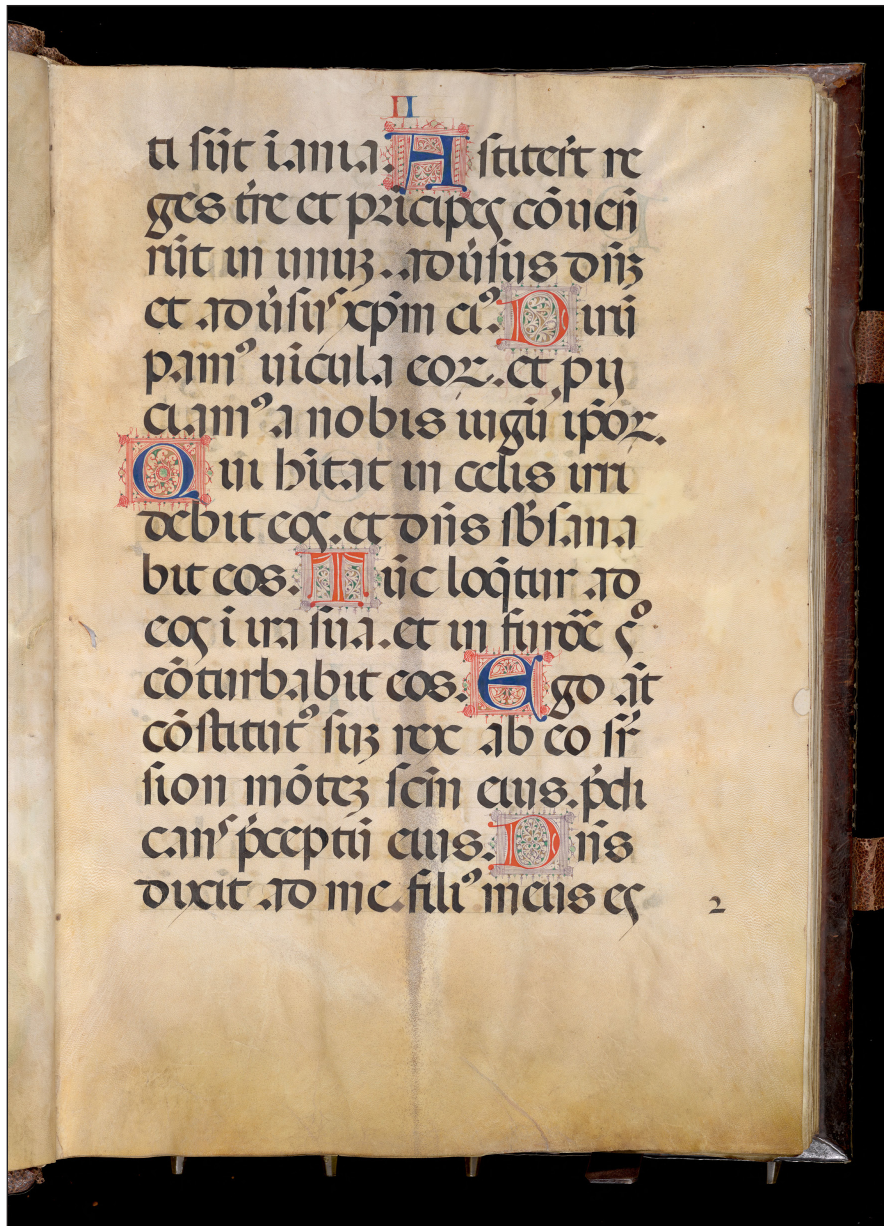 II
ti sūt īania. Astiterūt re
ges t̄re et prīcipes cōuen̄
rūt in unuꝫ. adūsus dn̄ꝫ
et adūsuˢ xp̄m eiꝰ. Diru
pamꝰ uīcula eoꝝ. et pij
ciamꝰ a nobis iugū ip̄oꝝ.
Qui hītat in celis irri
debit eos. et dn̄s sb̄sana
bit eos. Tūc loq̄tur ad
eos ī ira sua. et in furoē sꝰ
cōturbabit eos. Ego āt
cōstitutꝰ suꝫ rex ab eo sr̄
sion mōteꝫ scm̄ eius. p̄di
canˢ p̄ceptū eius. Dn̄s
dixit ad me. filiꝰ meus es
2